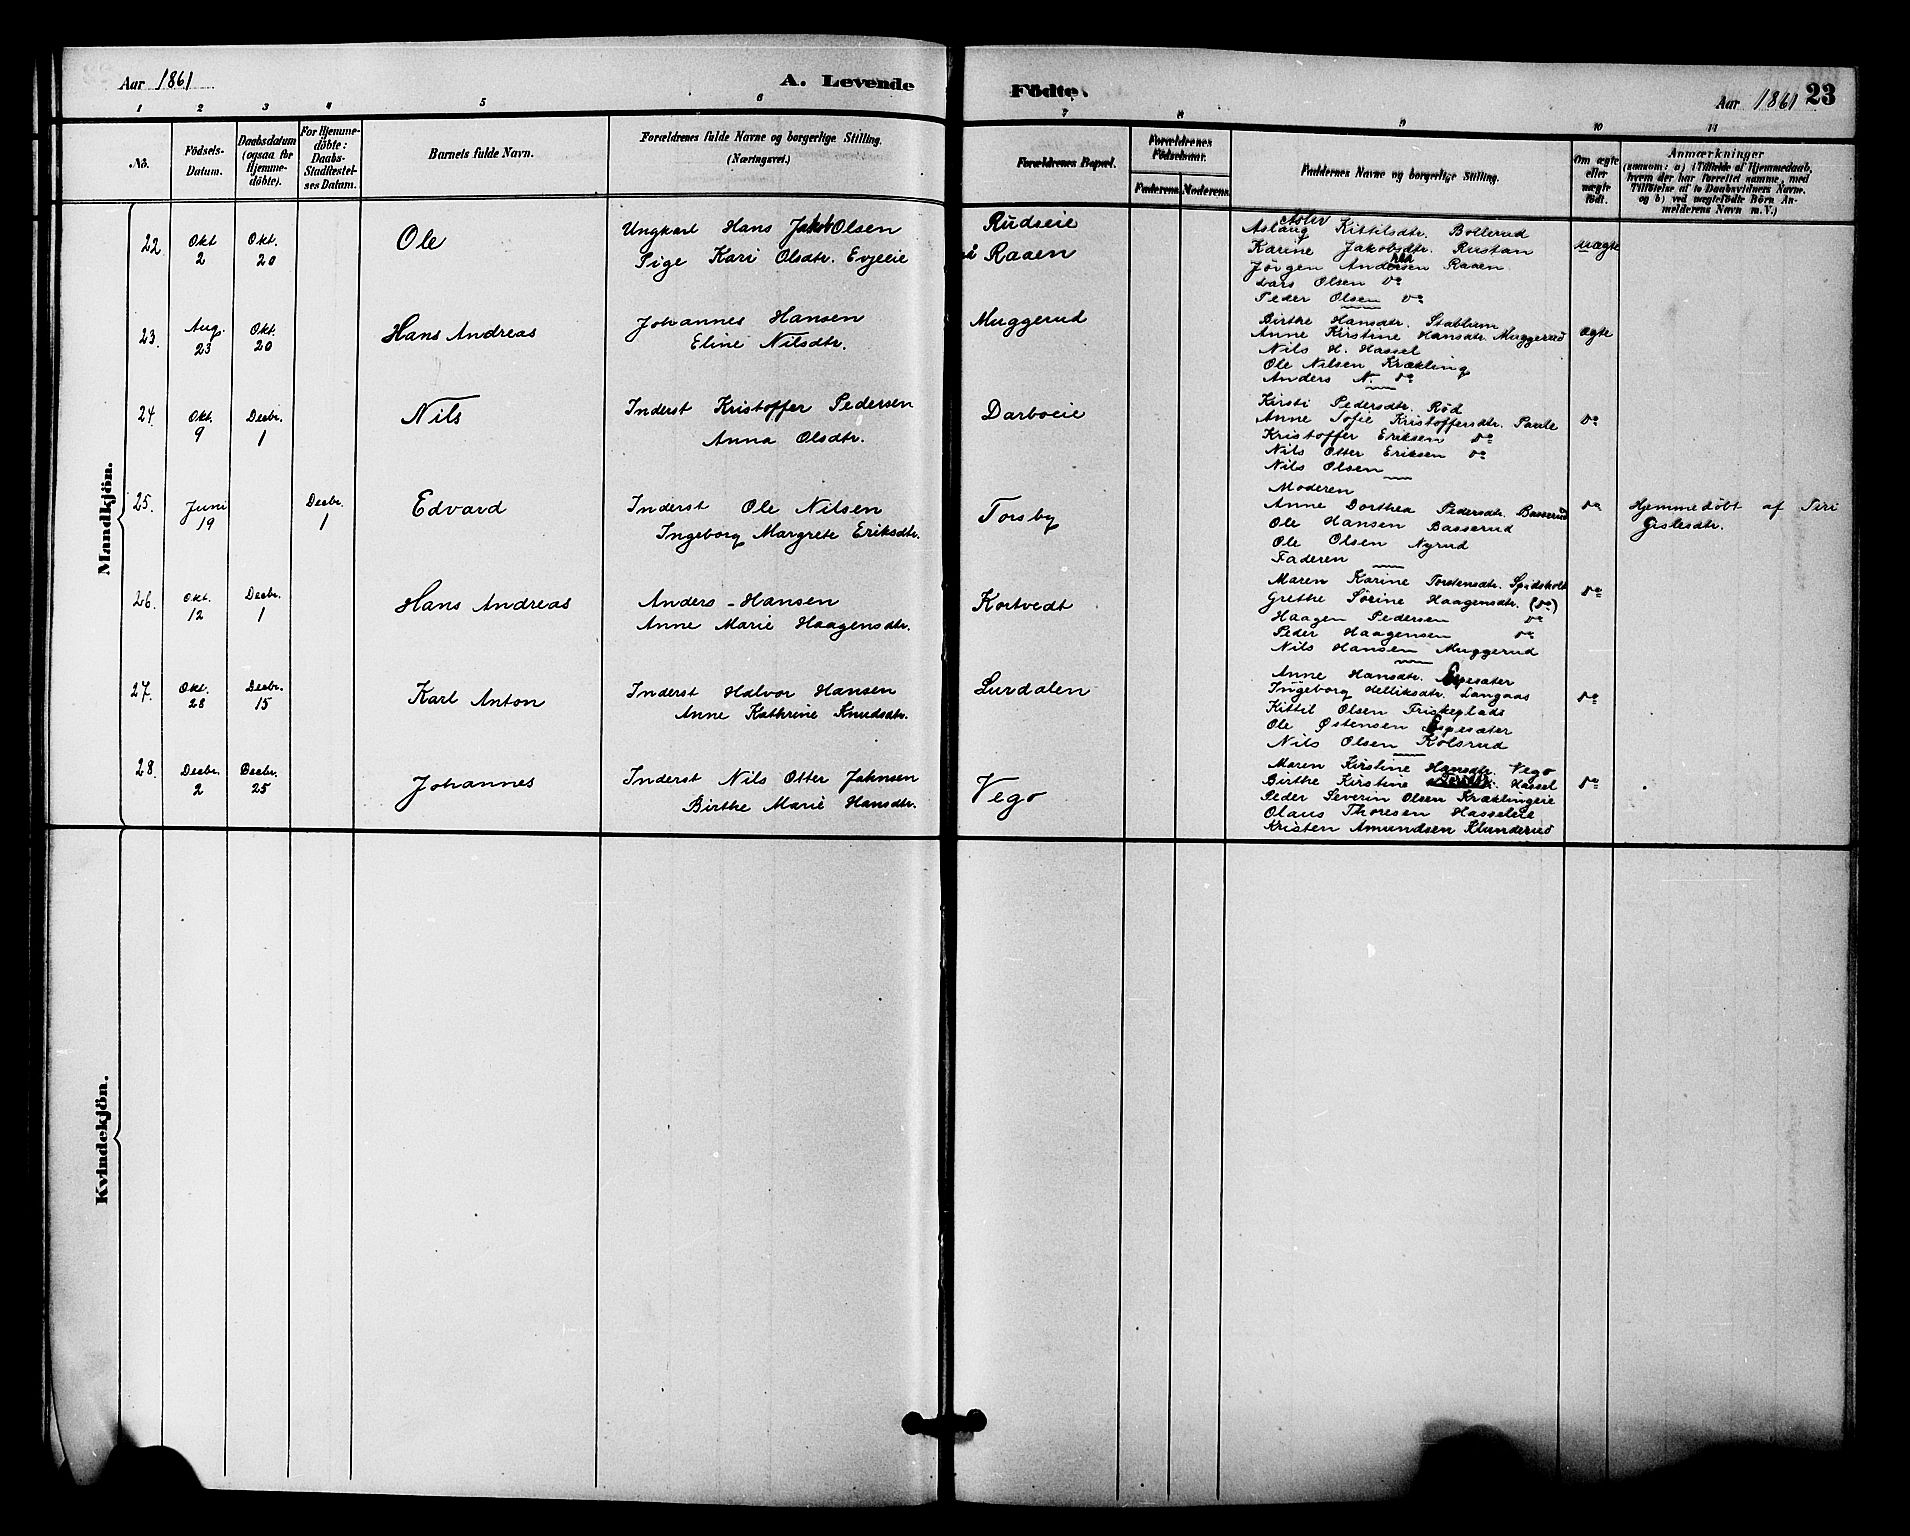 Aar 1861
A. Levende Födte.
Aar 1861 23
1 2 3 4 5 6 7 8 9 10 11
No.
Födsels-
Datum.
Daabsdatum
(ogsaa for
Hjemme-
döbte).
For Hjemme-
döbte:
Daabs-
Stadfæstel-
ses Datum.
Barnets fulde Navn.
Forældrenes fulde Navne og borgerlige Stilling.
(Næringsvei.)
Forældrenes Bopæl.
Forældrenes
Födselsaar.
Faderens. Moderens.
Faddernes Navne og borgerlige Stilling.
Om ægte
eller
uægte
födt.
Anmærkninger
(saasom: a) i Tilfælde af Hjemmedaab,
hvem der har forrettet samme, med
Tilföielse af to Daabsvidners Navne.
og b) ved uægtefödte Börn An-
melderens Navn m. V.)
Mandkjön.
22. Okt 2 Okt. 20 Ole
Ungkarl Hans Jakob Olsen Rudseie
Pige Kari Olsdtr. Evjeeie på Raaen
Aslaug Aslav Kittilsdtr. Bollerud
Karine Jakobsdtr. Rustan
Jörgen Andersen Raaen
Lars Olsen do
Peder Olsen do
uægte
23. Aug. 23 Okt. 20 Hans Andreas
Johannes Hansen
Eline Nilsdtr.
Muggerud
Birthe Hansdtr. Stablum
Anne Kirstine Hansdtr. Muggerud
Nils H. Hassel
Ole Nilsen Krækling
Anders N. do
ægte
24. Okt. 9 Decbr. 1 Nils
Inderst Kristoffer Pedersen
Anna Olsdtr.
Darboeie
Kirsti Pedersdtr. Rød
Anne Sofie Kristoffersdtr. Paule
Kristoffer Eriksen do
Nils Otter Eriksen do
Nils Olsen
do
25. Juni 19 Decbr. 1 Edvard
Inderst Ole Nilsen
Ingeborg Margrete Eriksdtr.
Torsby
Moderen
Anne Dorthea Pedersdtr. Basserud
Ole Hansen Basserud
Ole Olsen Nyrud
Faderen
do
Hjemmedöbt af Siri
Gislesdtr.
26. Okt. 12 Decbr. 1 Hans Andreas
Anders Hansen
Anne Marie Haagensdtr.
Kortvedt
Maren Karine Torstensdtr. Spidsholt
Grethe Sörine Haagensdtr. (do)
Haagen Pedersen do
Peder Haagensen do
Nils Hansen Muggerud
do
27. Okt. 28 Decbr. 15 Karl Anton
Inderst Halvor Hansen
Anne Kathrine Knudsdtr.
Lurdalen
Anne Hansdtr. Espesæter
Ingeborg Helliksdtr. Langaas
Kittil Olsen Friskeplads
Ole Østensen Espesæter
Nils Olsen Kolsrud
do
28. Decbr. 2 Decbr. 25 Johannes
Inderst Nils Otter Jahnsen
Birthe Marie Hansdtr.
Vego
Maren Kirstine Hansdtr. Vego
Birthe Kirstine Hassel
Peder Severin Olsen Kræklingeie
Olaus Thoresen Hasseleie
Kristen Amundsen Klunderud
do
Kvindekjön.